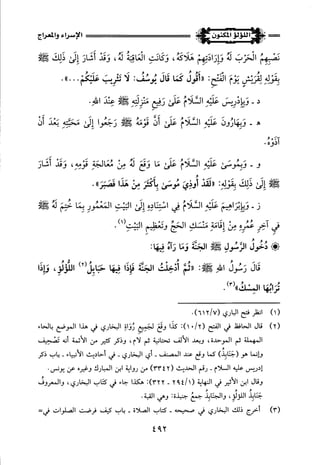 اللؤلؤ المكنون
الإسراء والمعراج
نَصْبِهِمُ الْحَرْبَ لَهُ وَإِرَادَتِهِمْ هَلَاكَهُ، وَكَانَتِ الْعَاقِبَةُ لَهُ، وَقَدْ أَشَارَ إِلَى ذَلِكَ ﷺ
بِقَوْلِهِ لِقُرَيْشٍ يَوْمَ الْفَتْحِ: «أَقُولُ كَمَا قَالَ يُوسُفُ: لَا تَثْرِيبَ عَلَيْكُمْ...».
د - وَبِإِدْرِيسَ عَلَيْهِ السَّلَامُ عَلَى رَفِيعِ مَنْزِلَتِهِ ﷺ عِنْدَ اللهِ.
هـ - وَبِهَارُونَ عَلَيْهِ السَّلَامُ عَلَى أَنَّ قَوْمَهُ ﷺ رَجَعُوا إِلَى مَحَبَّتِهِ بَعْدَ أَنْ
آذَوْهُ.
و - وَبِمُوسَى عَلَيْهِ السَّلَامُ عَلَى مَا وَقَعَ لَهُ مِنْ مُعَالَجَةِ قَوْمِهِ، وَقَدْ أَشَارَ
ﷺ إِلَى ذَلِكَ بِقَوْلِهِ: «لَقَدْ أُوذِيَ مُوسَى بِأَكْثَرَ مِنْ هَذَا فَصَبَرَ».
ز - وَبِإِبْرَاهِيمَ عَلَيْهِ السَّلَامُ فِي اسْتِنَادِهِ إِلَى الْبَيْتِ الْمَعْمُورِ بِمَا خُتِمَ لَهُ ﷺ
فِي آخِرِ عُمْرِهِ مِنْ إِقَامَةِ مَنْسَكِ الْحَجِّ وَتَعْظِيمِ الْبَيْتِ(١).
دُخُولُ الرَّسُولِ ﷺ الجَنَّةَ وَمَا رَآهُ فِيهَا:
قَالَ رَسُولُ اللهِ ﷺ: «ثُمَّ أُدْخِلْتُ الجَنَّةَ فَإِذَا فِيهَا حَبَايِلُ(٢) اللُّؤْلُؤِ، وَإِذَا
تُرَابُهَا الْمِسْكُ»(٣).
(١) انظر فتح الباري (٦١٢/٧).
(٢) قال الحافظ في الفتح (١٠/٢): كذا وقع لجميع رُوَاةِ البخاري في هذا الموضع بالحاء
المهملة ثم الموحدة، وبعد الألف تحتانية ثم لام، وذكر كثير من الأئمة أنه تصحيف
وإنما هو (جَنَابِذُ) كما وقع عند المصنف - أي البخاري - في أحاديث الأنبياء - باب ذكر
إدريس عليه السلام - رقم الحديث (٣٣٤٢) من رواية ابن المبارك وغيره عن يونس.
وقال ابن الأثير في النهاية (٢٩٤/١ - ٣٢٢): هكذا جاء في كتاب البخاري، والمعروف
جَنَابِذُ اللؤلؤ، والجنابذُ جمعُ جنبذة: وهي القبة.
(٣) أخرج ذلك البخاري في صحيحه - كتاب الصلاة - باب كيف فرضت الصلوات في=
٤٩٢